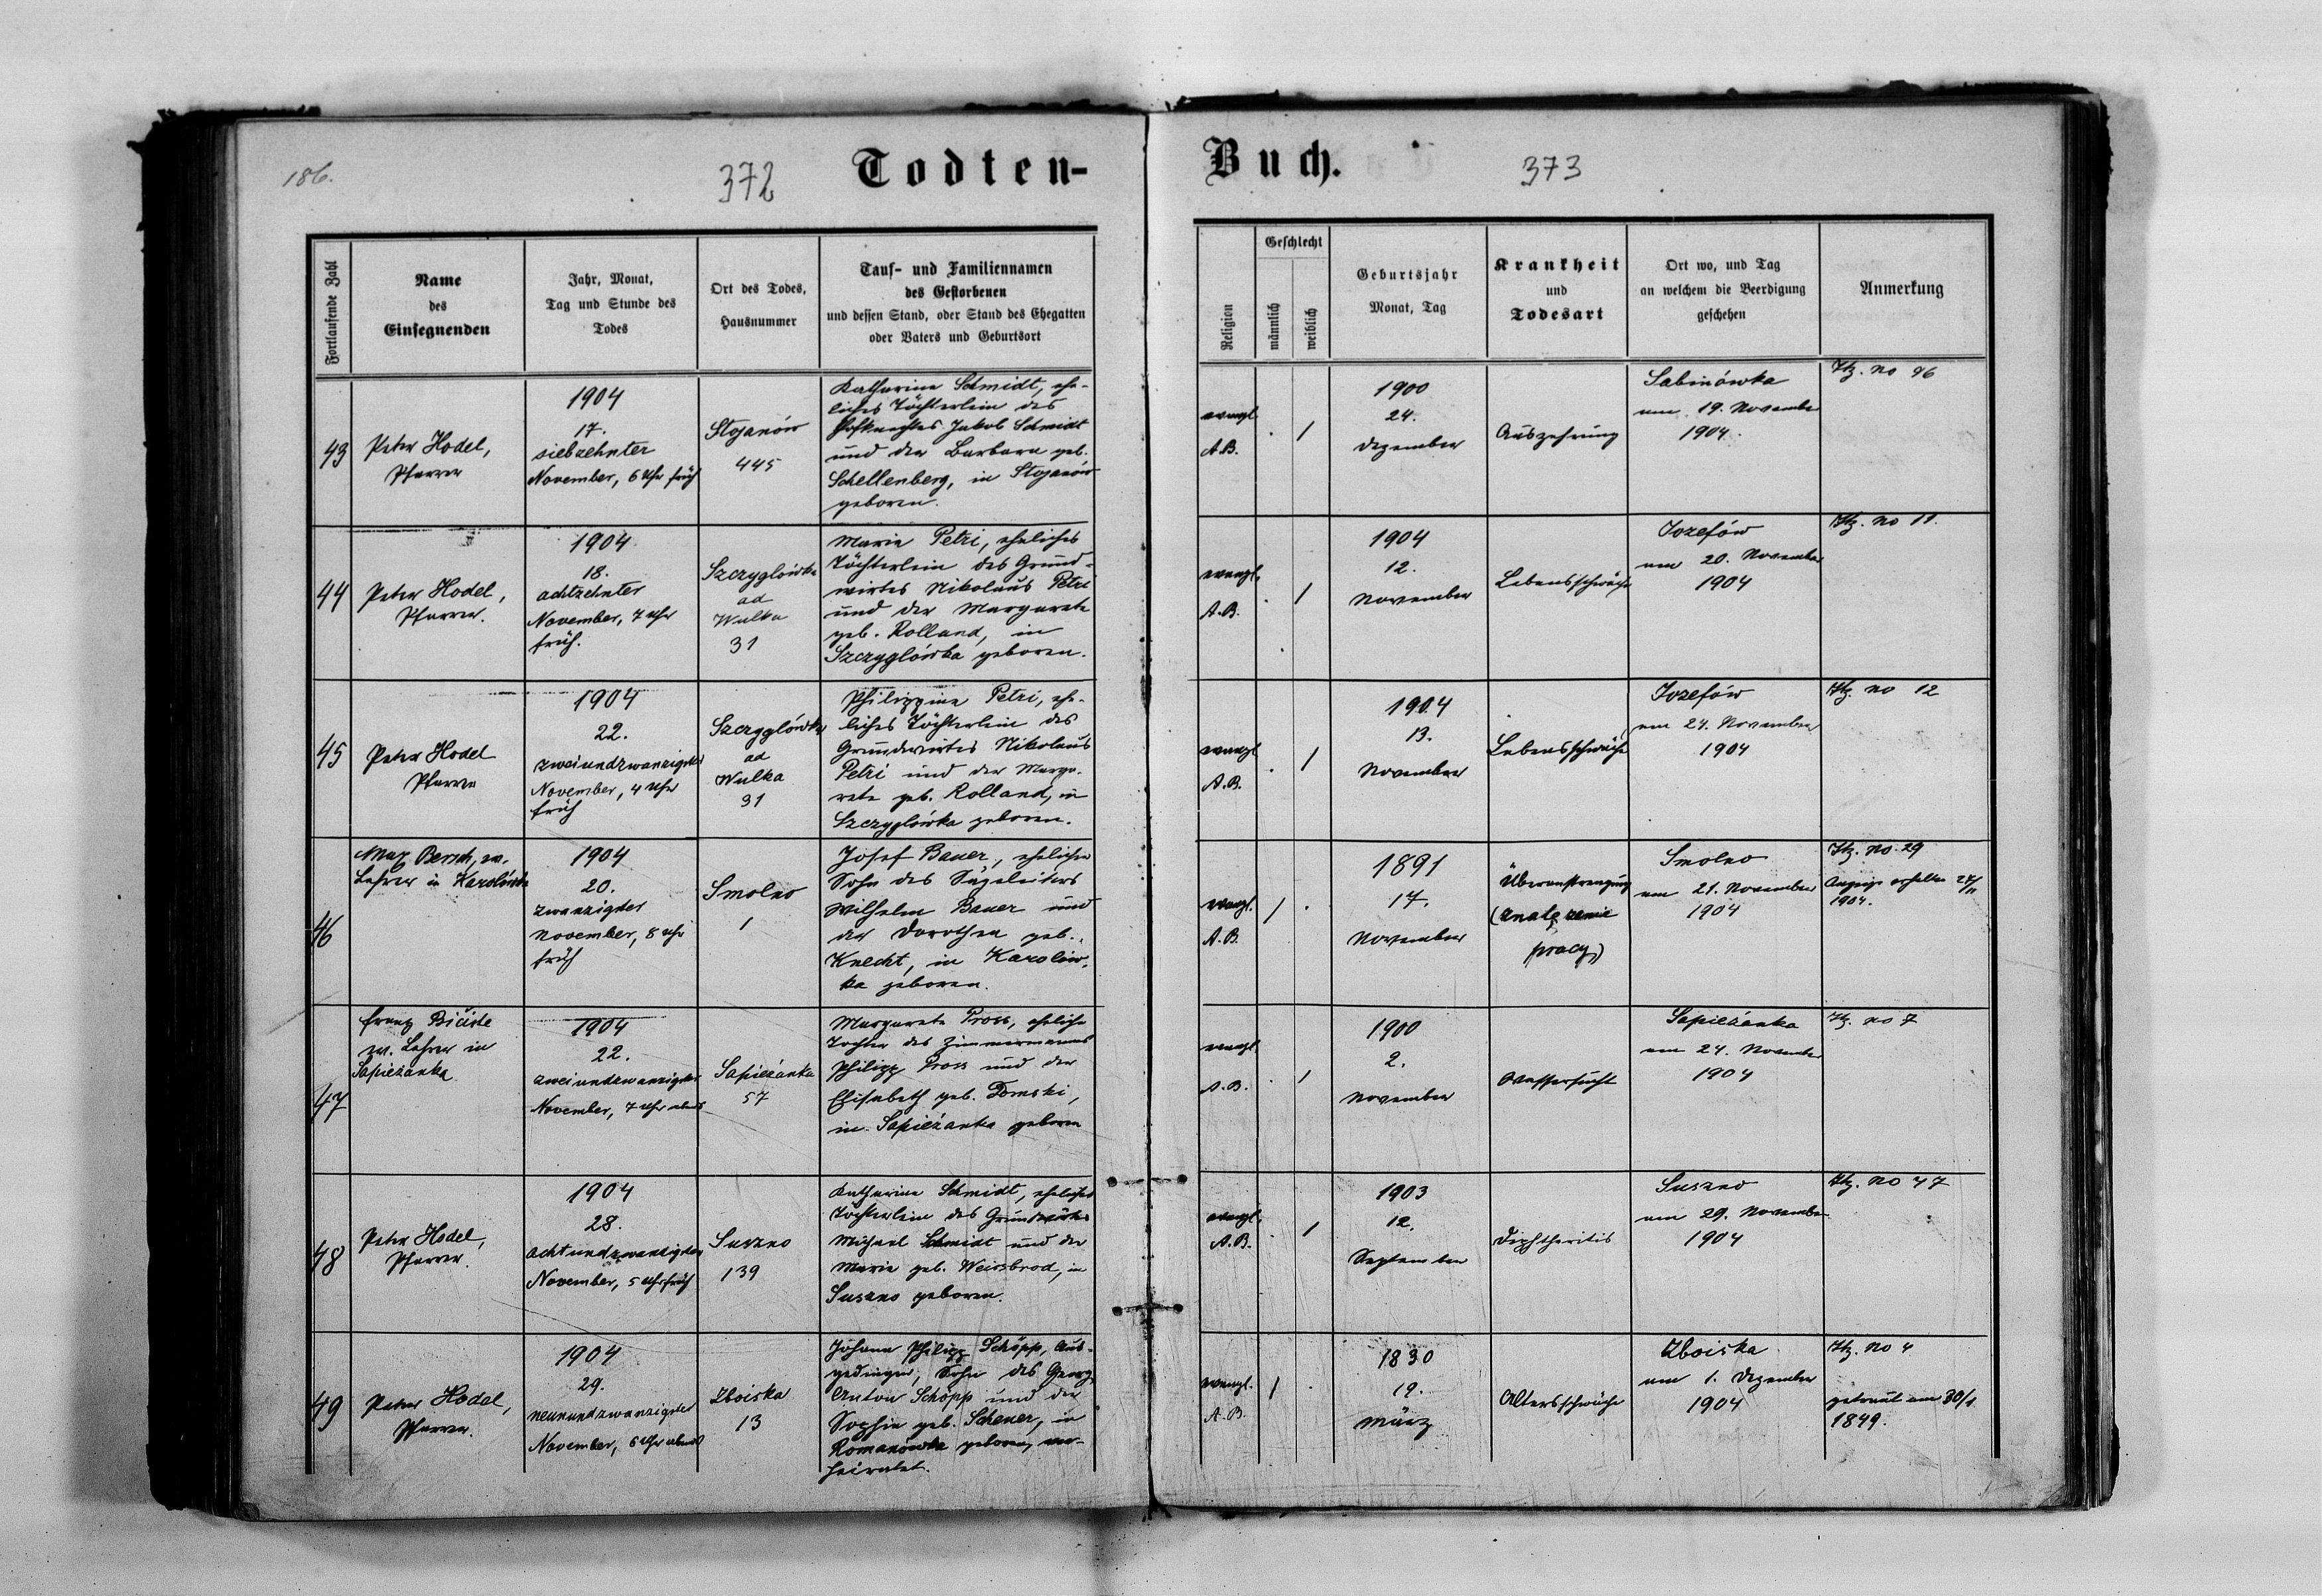 186.
372
Todten-
Buch.
373
Fortlaufende Zahl
Name
des
Einsegnenden
Jahr, Monat,
Tag und Stunde des
Todes
Ort des Todes,
Hausnummer
Tauf- und Familiennamen
des Gestorbenen
und dessen Stand, oder Stand des Ehegatten
oder Vaters und Geburtsort
Religion
Geschlecht
männlich
weiblich
Geburtsjahr
Monat, Tag
Krankheit
und
Todesart
Ort wo, und Tag
an welchem die Beerdigung
geschehen
Anmerkung
43
Peter Hodel,
Pfarrer
1904
17.
siebzehnter
November, 6 Uhr früh
Stojanów
445
Katharina Schmidt, ehe-
liches Töchterlein des
Hofknechtes Jakob Schmidt
und der Barbara geb.
Schellenberg, in Stojanów
geboren.
evangl.
A.B.
. /
1900
24.
Dezember
Auszehrung
Sabinówka
am 19. November
1904.
Itz. No 96
44
Peter Hodel,
Pfarrer.
1904
18.
achtzehnter
November, 7 Uhr
früh.
Szczyglówka
ad
Wulka
31
Maria Petri, eheliches
Töchterlein des Grund-
wirtes Nikolaus Petri
und der Margarete
geb. Rolland, in
Szczyglówka geboren.
evangl.
A.B.
. /
1904
12.
November
Lebensschwäche
Jozefów
am 20. November
1904
Itz. No 11.
45
Peter Hodel
Pfarrer
1904
22.
zweiundzwanzigster
November, 4 Uhr
früh
Szczyglówka
ad
Wulka
31
Philippine Petri, ehe-
liches Töchterlein des
Grundwirtes Nikolaus
Petri und der Marga-
rete geb. Rolland, in
Szczyglówka geboren.
evangl
A.B.
. /
1904
13.
November
Lebensschwäche
Jozefów
am 24. November
1904
Itz. No 12
46
Max Bersch, ev.
Lehrer in Karolówka
1904
20.
zwanzigster
November, 8 Uhr
früh
Smolno
1
Josef Bauer, ehelicher
Sohn des Sägeleiters
Wilhelm Bauer und
der Dorothea geb.
Knecht, in Karolów-
ka geboren.
evangl.
A.B.
/ .
1891
17.
November
Überanstrengung
pracy)
Smolno
am 21. November
1904
Itz. No. 29
Anzeige erhalten 27/11
1904.
47
Franz
ev. Lehrer in
Sapieżanka
1904
22.
zweiundzwanzigster
November, 7 Uhr abends
Sapieżanka
57
Margarete Pross, eheliche
Tochter des Zimmermanns
Philipp Pross und der
Elisabeth geb. Tomski,
in Sapieżanka geboren
evangl.
A.B.
. /
1900
2.
November
Wassersucht
Sapieżanka
am 24. November
1904
Itz. No 7
48
Peter Hodel,
Pfarrer.
1904
28.
achtundzwanzigster
November, 5 Uhr früh
Suszno
139
Katharina Schmidt, eheliches
Töchterlein des Grundwirtes
Michael Schmidt und der
Maria geb. Weissbrod, in
Suszno geboren.
evangl.
A.B.
. /
1903
12.
September
Diphtheritis
Suszno
am 29. November
1904
Itz. No 47
49
Peter Hodel,
Pfarrer.
1904
29.
neunundzwanzigster
November, 6 Uhr abends
Zboiska
13
Johann Philipp Schöpp, Aus-
gedinger, Sohn des Georg
Anton Schöpp und der
Sophia geb. Scheuer, in
Romanówka geboren, ver-
heiratet.
evangl.
A.B.
/ .
1830
19.
März
Altersschwäche
Zboiska
am 1. Dezember
1904
Itz. No 4
getraut am 30/1
1849.